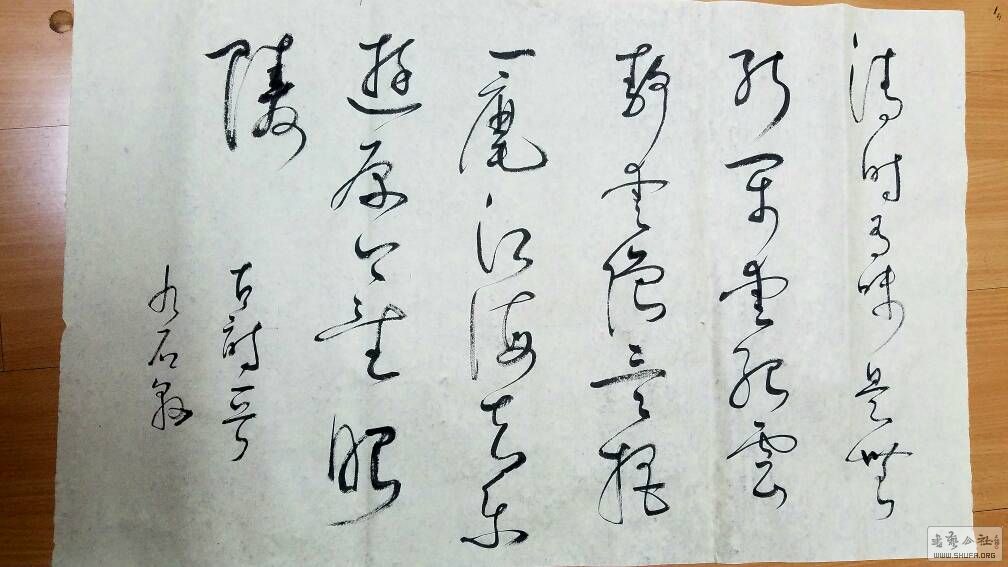 清时有味是無
能闲愛孤雲
静愛僧欲把
一麾江海去乐
遊原上望昭
陵
古诗一首
九石
书艺公社
WWW.SHUFA.ORG